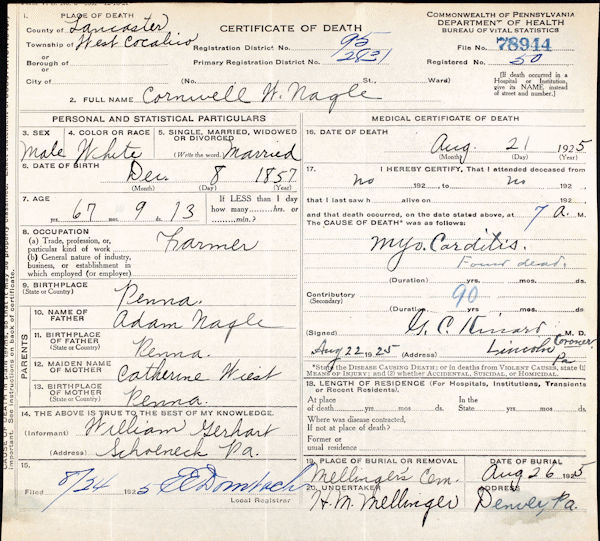 1. PLACE OF DEATH
County of Lancaster
Township of West Cocalico
or
Borough of
or
City of
CERTIFICATE OF DEATH
Registration District No. 95
Primary Registration District No. 2831
(No. St., Ward)
COMMONWEALTH OF PENNSYLVANIA
DEPARTMENT OF HEALTH
BUREAU OF VITAL STATISTICS
File No. 78914
Registered No. 50
[If death occurred in a
Hospital or Institution,
give its NAME instead
of street and number.]
2. FULL NAME Cornwell W. Nagle
PERSONAL AND STATISTICAL PARTICULARS
3. SEX
Male
4. COLOR OR RACE
White
5. SINGLE, MARRIED, WIDOWED
OR DIVORCED
(Write the word) Married
6. DATE OF BIRTH
Dec. 8 1857
(Month) (Day) (Year)
7. AGE
67 yrs. 9 mos. 13
If LESS than 1 day
how many hrs. or
min.?
8. OCCUPATION
(a) Trade, profession, or
particular kind of work
(b) General nature of industry,
business, or establishment in
which employed (or employer)
Farmer
9. BIRTHPLACE
(State or Country)
Penna.
PARENTS
10. NAME OF
FATHER
Adam Nagle
11. BIRTHPLACE
OF FATHER
(State or Country)
Penna.
12. MAIDEN NAME
OF MOTHER
Catherine Wiest
13. BIRTHPLACE
OF MOTHER
(State or Country)
Penna.
14. THE ABOVE IS TRUE TO THE BEST OF MY KNOWLEDGE.
(Informant) William Gerhart
(Address) Schoeneck Pa.
15.
Filed 8/24 1925 E E Dombach
Local Registrar
MEDICAL CERTIFICATE OF DEATH
16. DATE OF DEATH
Aug. 21 1925
(Month) (Day) (Year)
17. I HEREBY CERTIFY, That I attended deceased from
no 192 to no 192
that I last saw h alive on 192
and that death occurred, on the date stated above, at 7 a. M.
The CAUSE OF DEATH* was as follows:
Myo. Carditis.
Found dead.
(Duration) yrs. mos. ds.
Contributory
(Secondary)
90
(Duration) yrs. mos. ds.
(Signed) G. C. Kinard M. D.
Coroner
Aug 22 1925 (Address) Lincoln Pa
*State the DISEASE CAUSING DEATH; or in deaths from VIOLENT CAUSES, state (1)
MEANS OF INJURY; and (2) whether ACCIDENTAL, SUICIDAL, or HOMICIDAL.
18. LENGTH OF RESIDENCE (For Hospitals, Institutions, Transients
or Recent Residents).
At place
of death yrs. mos. ds.
In the
State yrs. mos. ds.
Where was disease contracted,
If not at place of death?
Former or
usual residence
19. PLACE OF BURIAL OR REMOVAL
Mellinger's Cem.
DATE OF BURIAL
Aug 26 1925
20. UNDERTAKER
H. M. Mellinger
ADDRESS
Denver, Pa.